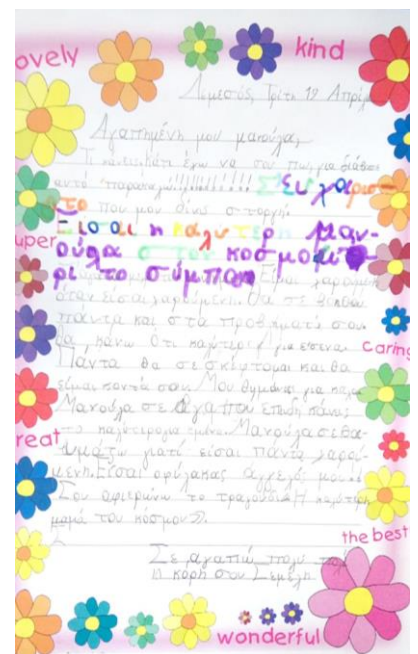 lovely
kind
Λεμεσός, Τρίτη 12 Απρίλ
Αγαπημένη μου μανούλα,
Τι κάνεις; Κάτι έχω να σου πω, για διάβασε
αυτό παρακαλώ!!!!!!!!!! Σε ευχαρισ-
το που μου δίνεις στοργή.
Είσαι η καλύτερη μαν-
ούλα στον κόσμο
ρι το σύμπαν
super
Είμαι χαρούμενη
όταν είσαι χαρούμενη. Θα σε βοηθάω
πάντα και στα προβλήματά σου
θα κάνω ότι καλύτερο για εσένα.
caring
Πάντα θα σε σκέφτομαι και θα
είμαι κοντά σου. Μου θυμώνεις για καλό
Μανούλα σε αγαπώ επειδή κάνεις
great
το καλύτερο για εμένα. Μανούλα σε θα-
υμάζω γιατί είσαι πάντα χαρού-
μενη. Είσαι ο φύλακας άγγελός μου!!
Σου αφιερώνω το τραγούδι «Η καλύτερη
μαμά του κόσμου».
the best
Σε αγαπώ πολύ πολύ
η κόρη σου Σεμέλη
wonderful